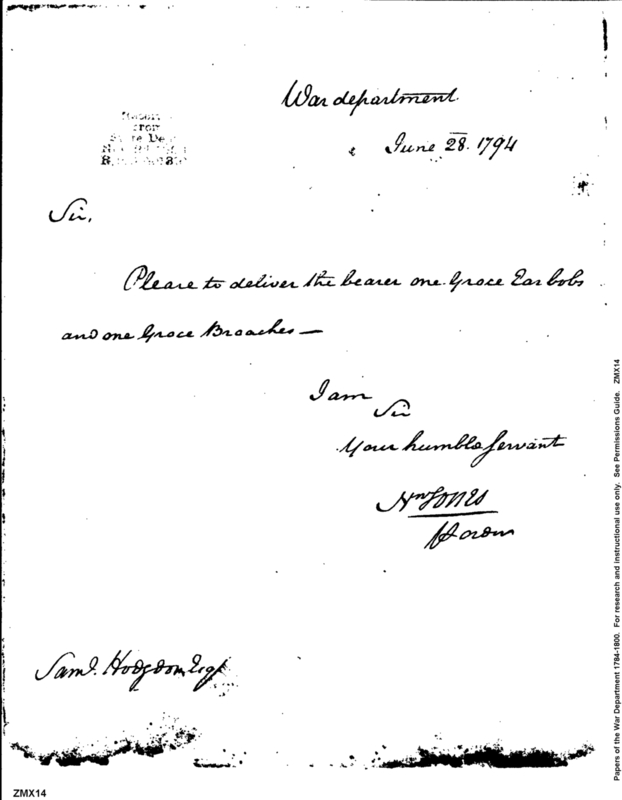 War department
June 28. 1794
from
Sir,
Please to deliver the bearer one Groce Ear bobs
and one Groce Broaches —
I am
Sir
Your humble Servant
Saml. Hodgdon, Esqr
Papers of the War Department 1784-1800. For research and instructional use only. See Permissions Guide. ZMX14
ZMX14